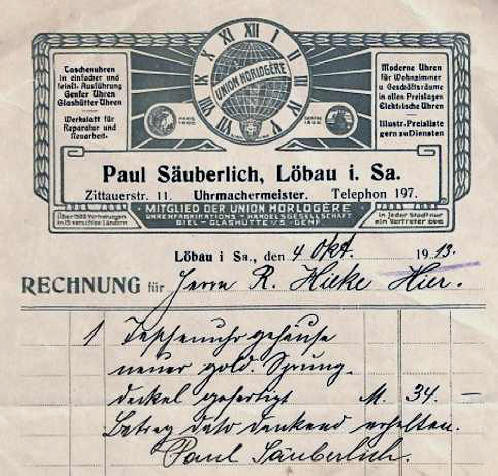 XII
UNION HORLOGÈRE
Taschenuhren
in einfacher und
feinst. Ausführung
Genfer Uhren
Glashütter Uhren
Werkstatt für
Reparatur und
Neuarbeit.
Moderne Uhren
für Wohnzimmer
u Geschäftsräume
in allen Preislagen
Elektrische Uhren
Illustr. Preisliste
gern zu Diensten
Paul Säuberlich, Löbau i. Sa.
Zittauerstr. 11. Uhrmachermeister. Telephon 197.
MITGLIED DER UNION HORLOGÈRE
UHRENFABRIKATIONS - HANDELSGESELLSCHAFT
BIEL - GLASHÜTTE i/S - GENF
Über 1500 Vertretungen
in 15 verschied. Ländern
In jeder Stadt nur
ein Vertreter
Löbau i Sa., den 4 Okt. 1913.
RECHNUNG für Herrn R. Hieke Hier.
1 Taschenuhrgehäuse
neuer gold. Sprung-
deckel gefertigt M. 34 –
Betrag dato dankend erhalten.
Paul Säuberlich.